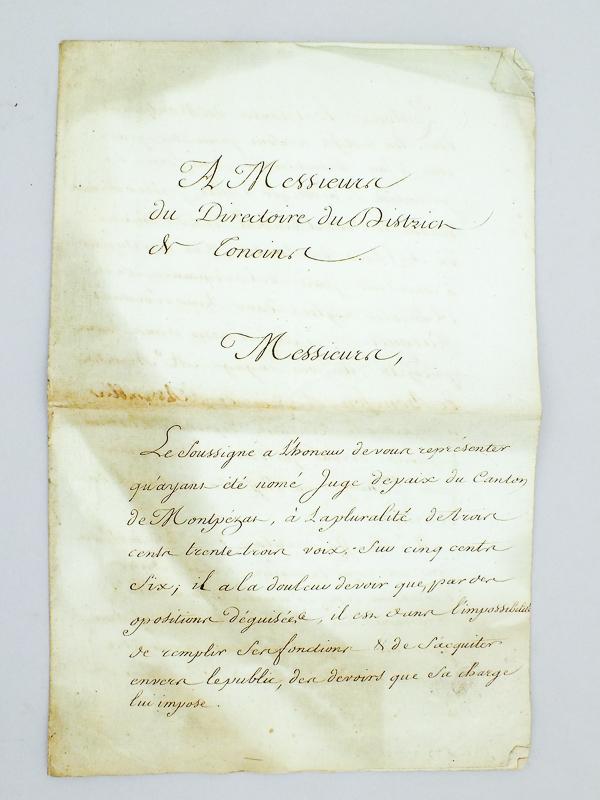 A Messieurs
du Directoire du District
de Toneins.
Messieurs,
Le Soussigné a L'honeur de vous représenter
qu'ayant été nomé Juge de paix du Canton
de Montpézat, à La pluralité de trois
cents trente trois voix, Sur cinq cents
Six; il a la douleur de voir que, par des
opositions déguisées, il est dans l'impossibilité
de remplir Ses fonctions & de S'acquiter
envers le public, des devoirs que Sa charge
lui impose.